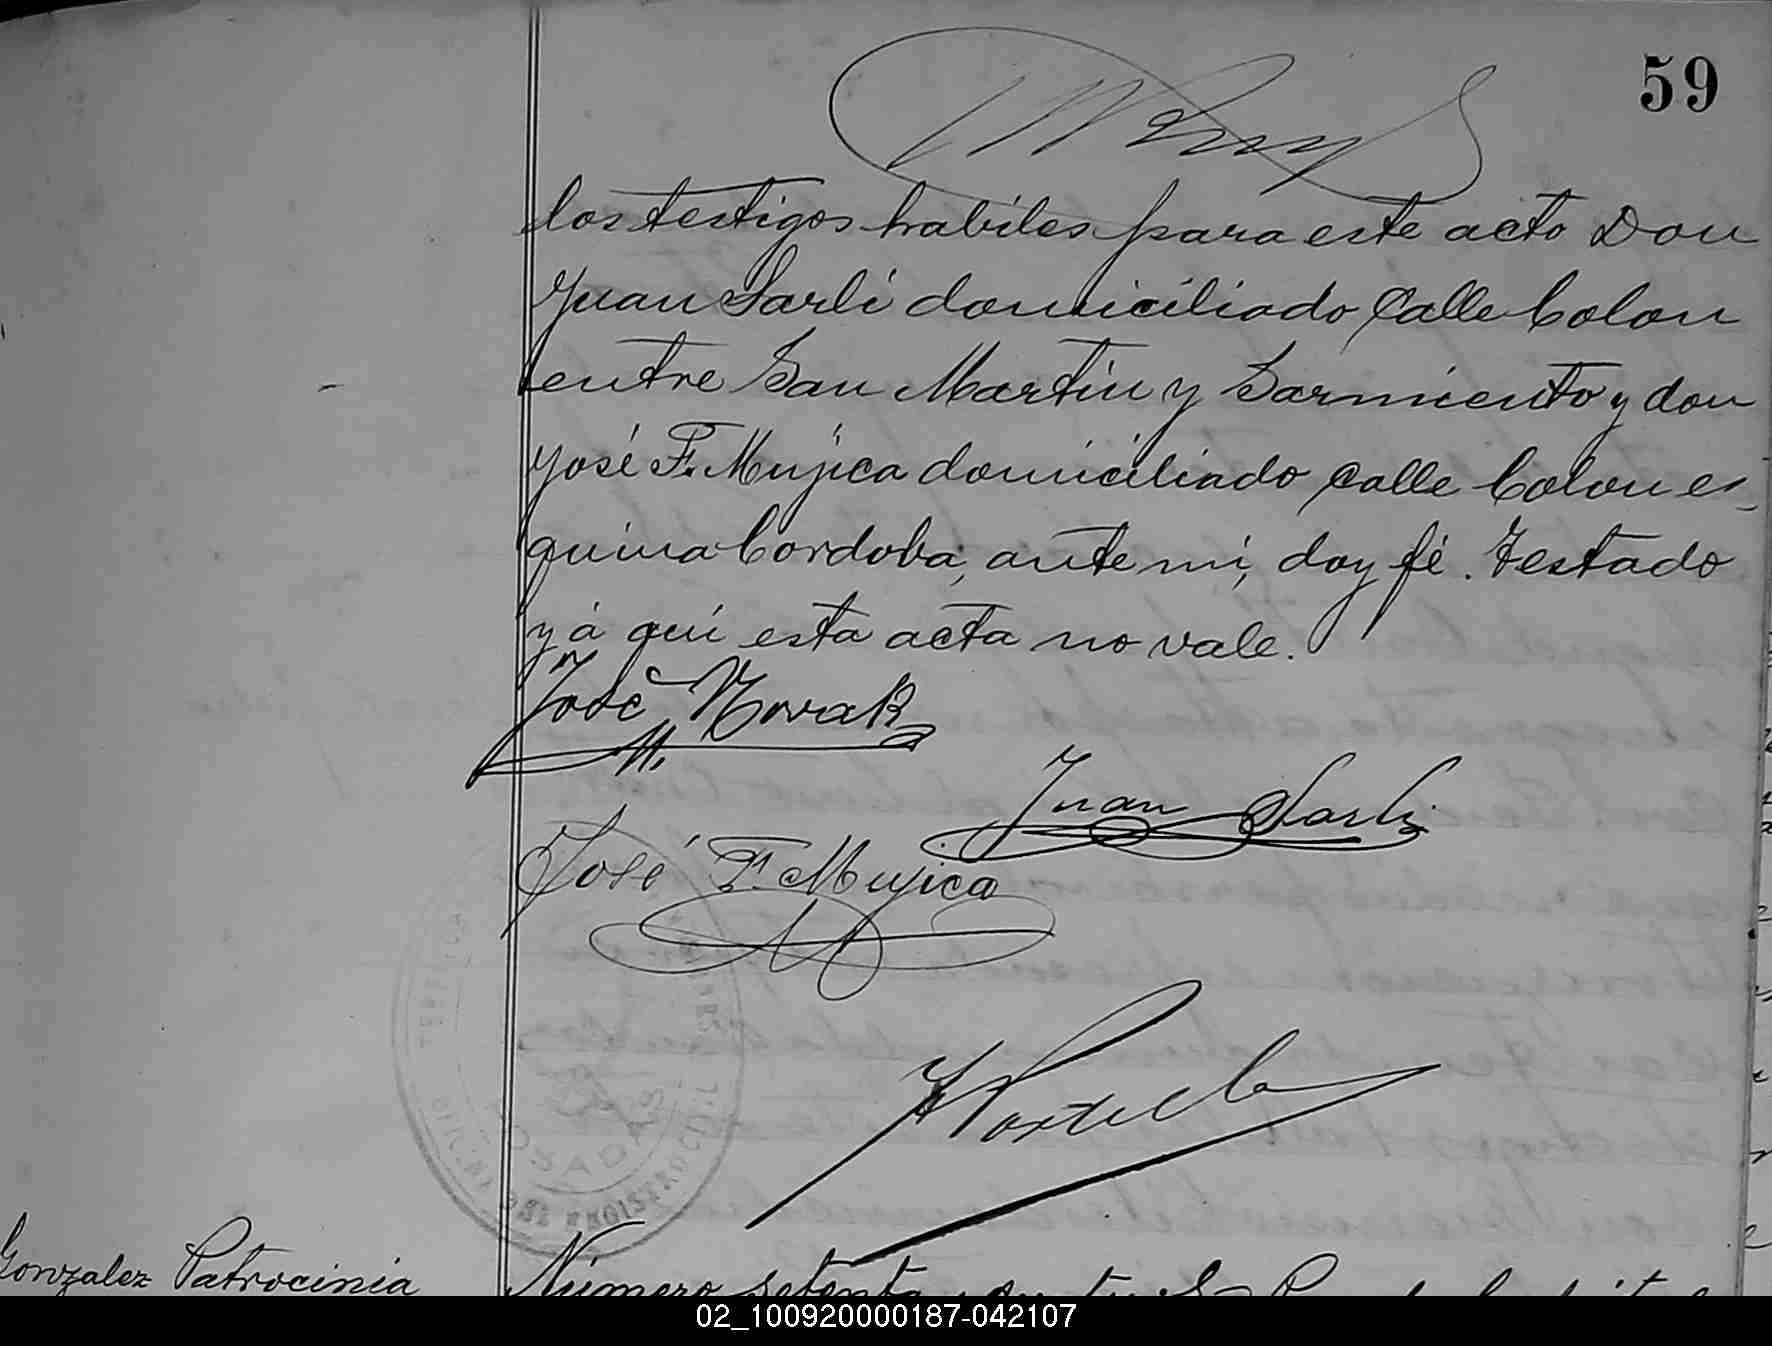 59
los testigos habiles para este acto Don
Juan Sarli domiciliado calle Colon
entre San Martin y Sarmiento y don
José F. Mujica domiciliado calle Colon es-
quina Cordoba, ante mi, doy fé. Testado
y á qui esta acta no vale.
José Novak
Juan Sarli
José F. Mujica
POSADAS
REGISTRO CIVIL
Gonzalez Patrocinia
Número setenta
02_100920000187-042107